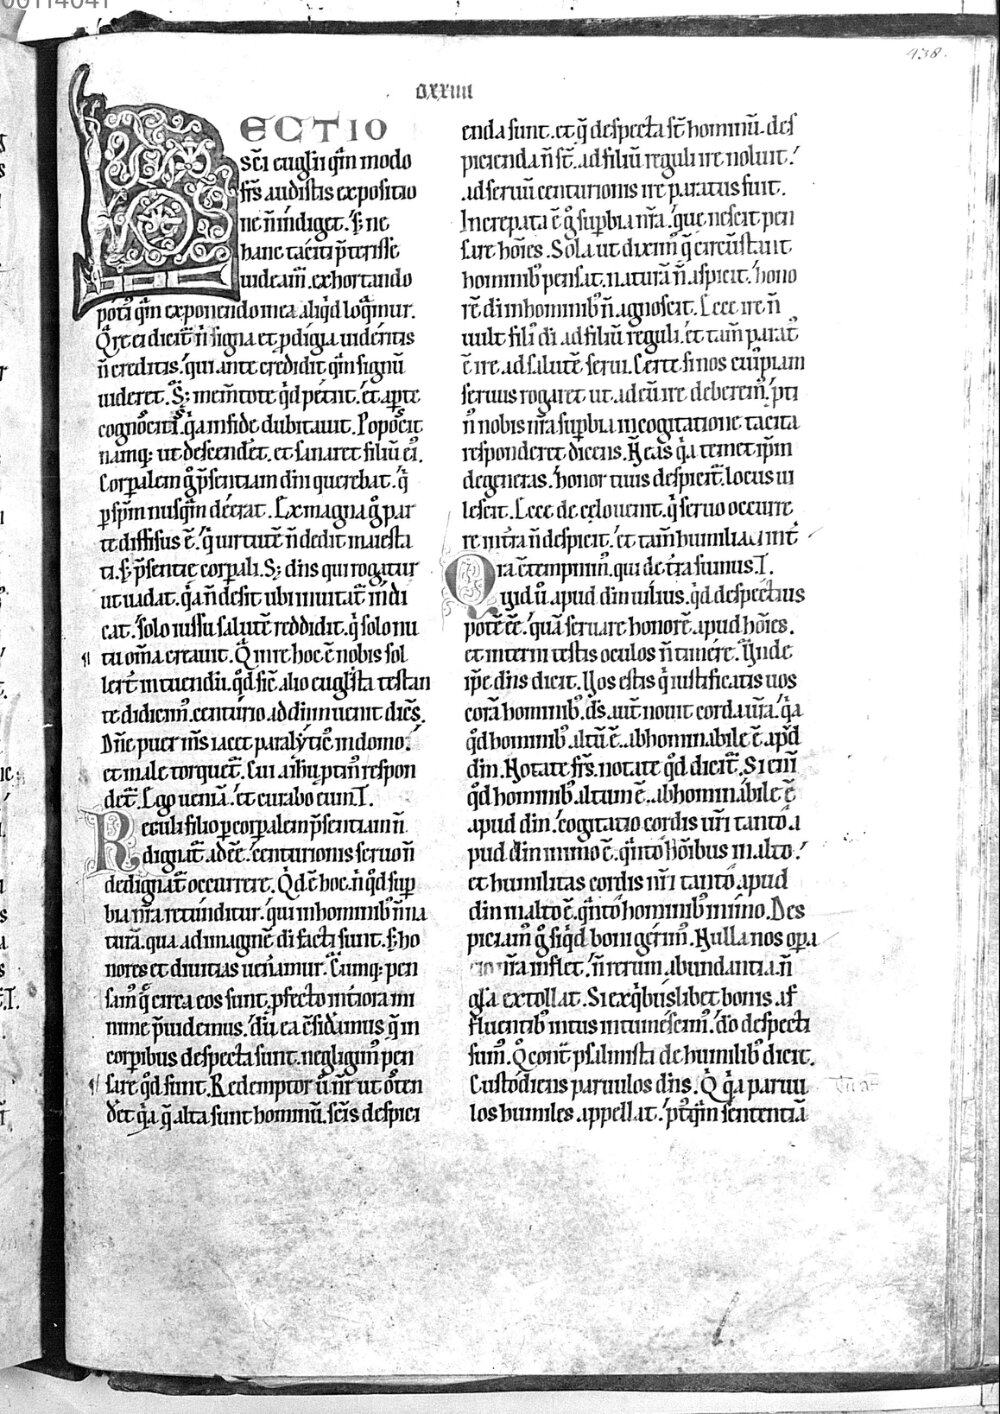 00114041
438.
cxxiiii
LECTIO
sc̄i eug̅lii qͥm modo
fr̄s audistis expositio
ne n̄ indiget. S; ne
hanc taciti p̄terisse
uideam̄. exhortando
poti᷒ qͣm exponendo in ea aliqͥd loqͥmur.
Qͬe ei dicit᷑ n̄ signa et ꝓdigia uideritis
n̄ creditis. qui ante credidit qͣm signū
uideret. S; mem̄tote qͥd petiit. et aꝑte
cognoscitis. qͥa in fide dubitauit. Poposcit
namq; ut descenderet. et sanaret filiū ei᷒.
Corꝑalem gͦ p̄sentiam dn̄i querebat. qͥ
ꝑ sp̄m nusqͣm deerat. Ex magna gͦ par
te diffisus ē. qͥ uirtutē n̄ dedit maiesta
ti. s; p̄sentie corꝑali. S; dn̄s qui rogatur
ut uadat. qͥa n̄ desit ubi inuitat᷑ indi
cat. solo iussu salutē reddidit. qͥ solo nu
tu om̄a creauit. Qͣ in re hoc ē nobis sol
lert᷑ intuendū. qͦd sic̄ alio eug̅lista testan
te didicim᷒. centurio ad dn̄m uenit dicēs.
Dn̄e puer m̄s iacet paralytic᷒ in domo.
et male torquet᷑. Cui a ihū ptin᷒ respon
det᷑. Ego ueniā. et curabo eum. I.
Reguli filio ꝑ corꝑalem p̄sentiam n̄
dignat᷑ adeē. centurionis seruo n̄
dedignat᷑ occurrere. Qͥd ē hoc. n̄ qͦd suꝑ
bia nr̄a retunditur. qui in hominib᷒ n̄ na
turā. qua ad imaginē di facti sunt. s; ho
nores et diuitias ueñamur. Cumq; pen
sam᷒ qͤ circa eos sunt. ꝓfecto int̄iora mi
nime ꝑuidemus. dū ea c̄sidamus qͤ in
corporibus despecta sunt. negligim᷒ pen
sare qͦd sunt. Redemptor ū nr̄ ut osten
det qͥa qͤ alta sunt hominū. scīs despici
enda sunt. et qͤ despecta st̄ hominū. des
picienda n̄ st̄. ad filiū reguli ire noluit.
ad seruū centurionis ire paratus fuit.
Increpata ē gͦ suꝑbia nr̄a. que nescit pen
sare hōies. Sola ut dixim᷒ qͤ circūstant
hominib᷒ pensat. naturā n̄ aspicit. hono
rē di in hominib᷒ n̄ agnoscit. Ecce ire n̄
uult fili᷒ di ad filiū reguli. et tam̄ parat᷒
ē ire ad salutē serui. Certe si nos cui᷒piam
seruus rogaret ut ad eū ire deberem᷒. ꝓti
n᷒ nobis nr̄a suꝑbia in cogitatione tacita
responderet dicens. Ne eas qͥa temet ip̄m
degeneras. honor tuus despicit᷑. locus ui
lescit. Ecce de celo uenit. qͥ seruo occurre
re in t̄ra n̄ despicit. et tam̄ humiliari
Qͥa ē tempnim᷒. qui de t̄ra sumus. I.
Quid ū apud dn̄m uilius. qͥd despectius
potē ēē. quā seruare honorē apud hōies.
et interni testis oculos n̄ timere. Unde
ip̄e dn̄s dicit. Uos estis qͥ iustificatis uos
corā hominib᷒. ds̄ aut̄ nouit corda ur̄a. qͥa
qͦd hominib᷒ altū ē. abhominabile ē apd̄
dm̄. Notate fr̄s. notate qͥd dicit᷑. Si eni
qͦd hominib᷒ altum ē. abhominabile ē
apud dm̄. cogitatio cordis ur̄i tanto a
pud dm̄ in imo ē. qͣnto hōibus in alto.
et humilitas cordis nr̄i tanto apud
dn̄m in alto ē. qͣnto hominib᷒ in imo. Des
piciam᷒ gͦ siqͥd boni gerim᷒. Nulla nos oꝑa
cio nr̄a inflet. n̄ rerum abundantia. n̄
gl̄a extollat. Si ex qͥbuslibet bonis af
fluentib᷒ intus intumescim᷒. do despecti
sum᷒. Qͦ cont̄ psalmista de humilib᷒ dicit.
Custodiens paruulos dn̄s. Q̄ qͥa paruu
los humiles appellat. pͦtqͣm sententiā